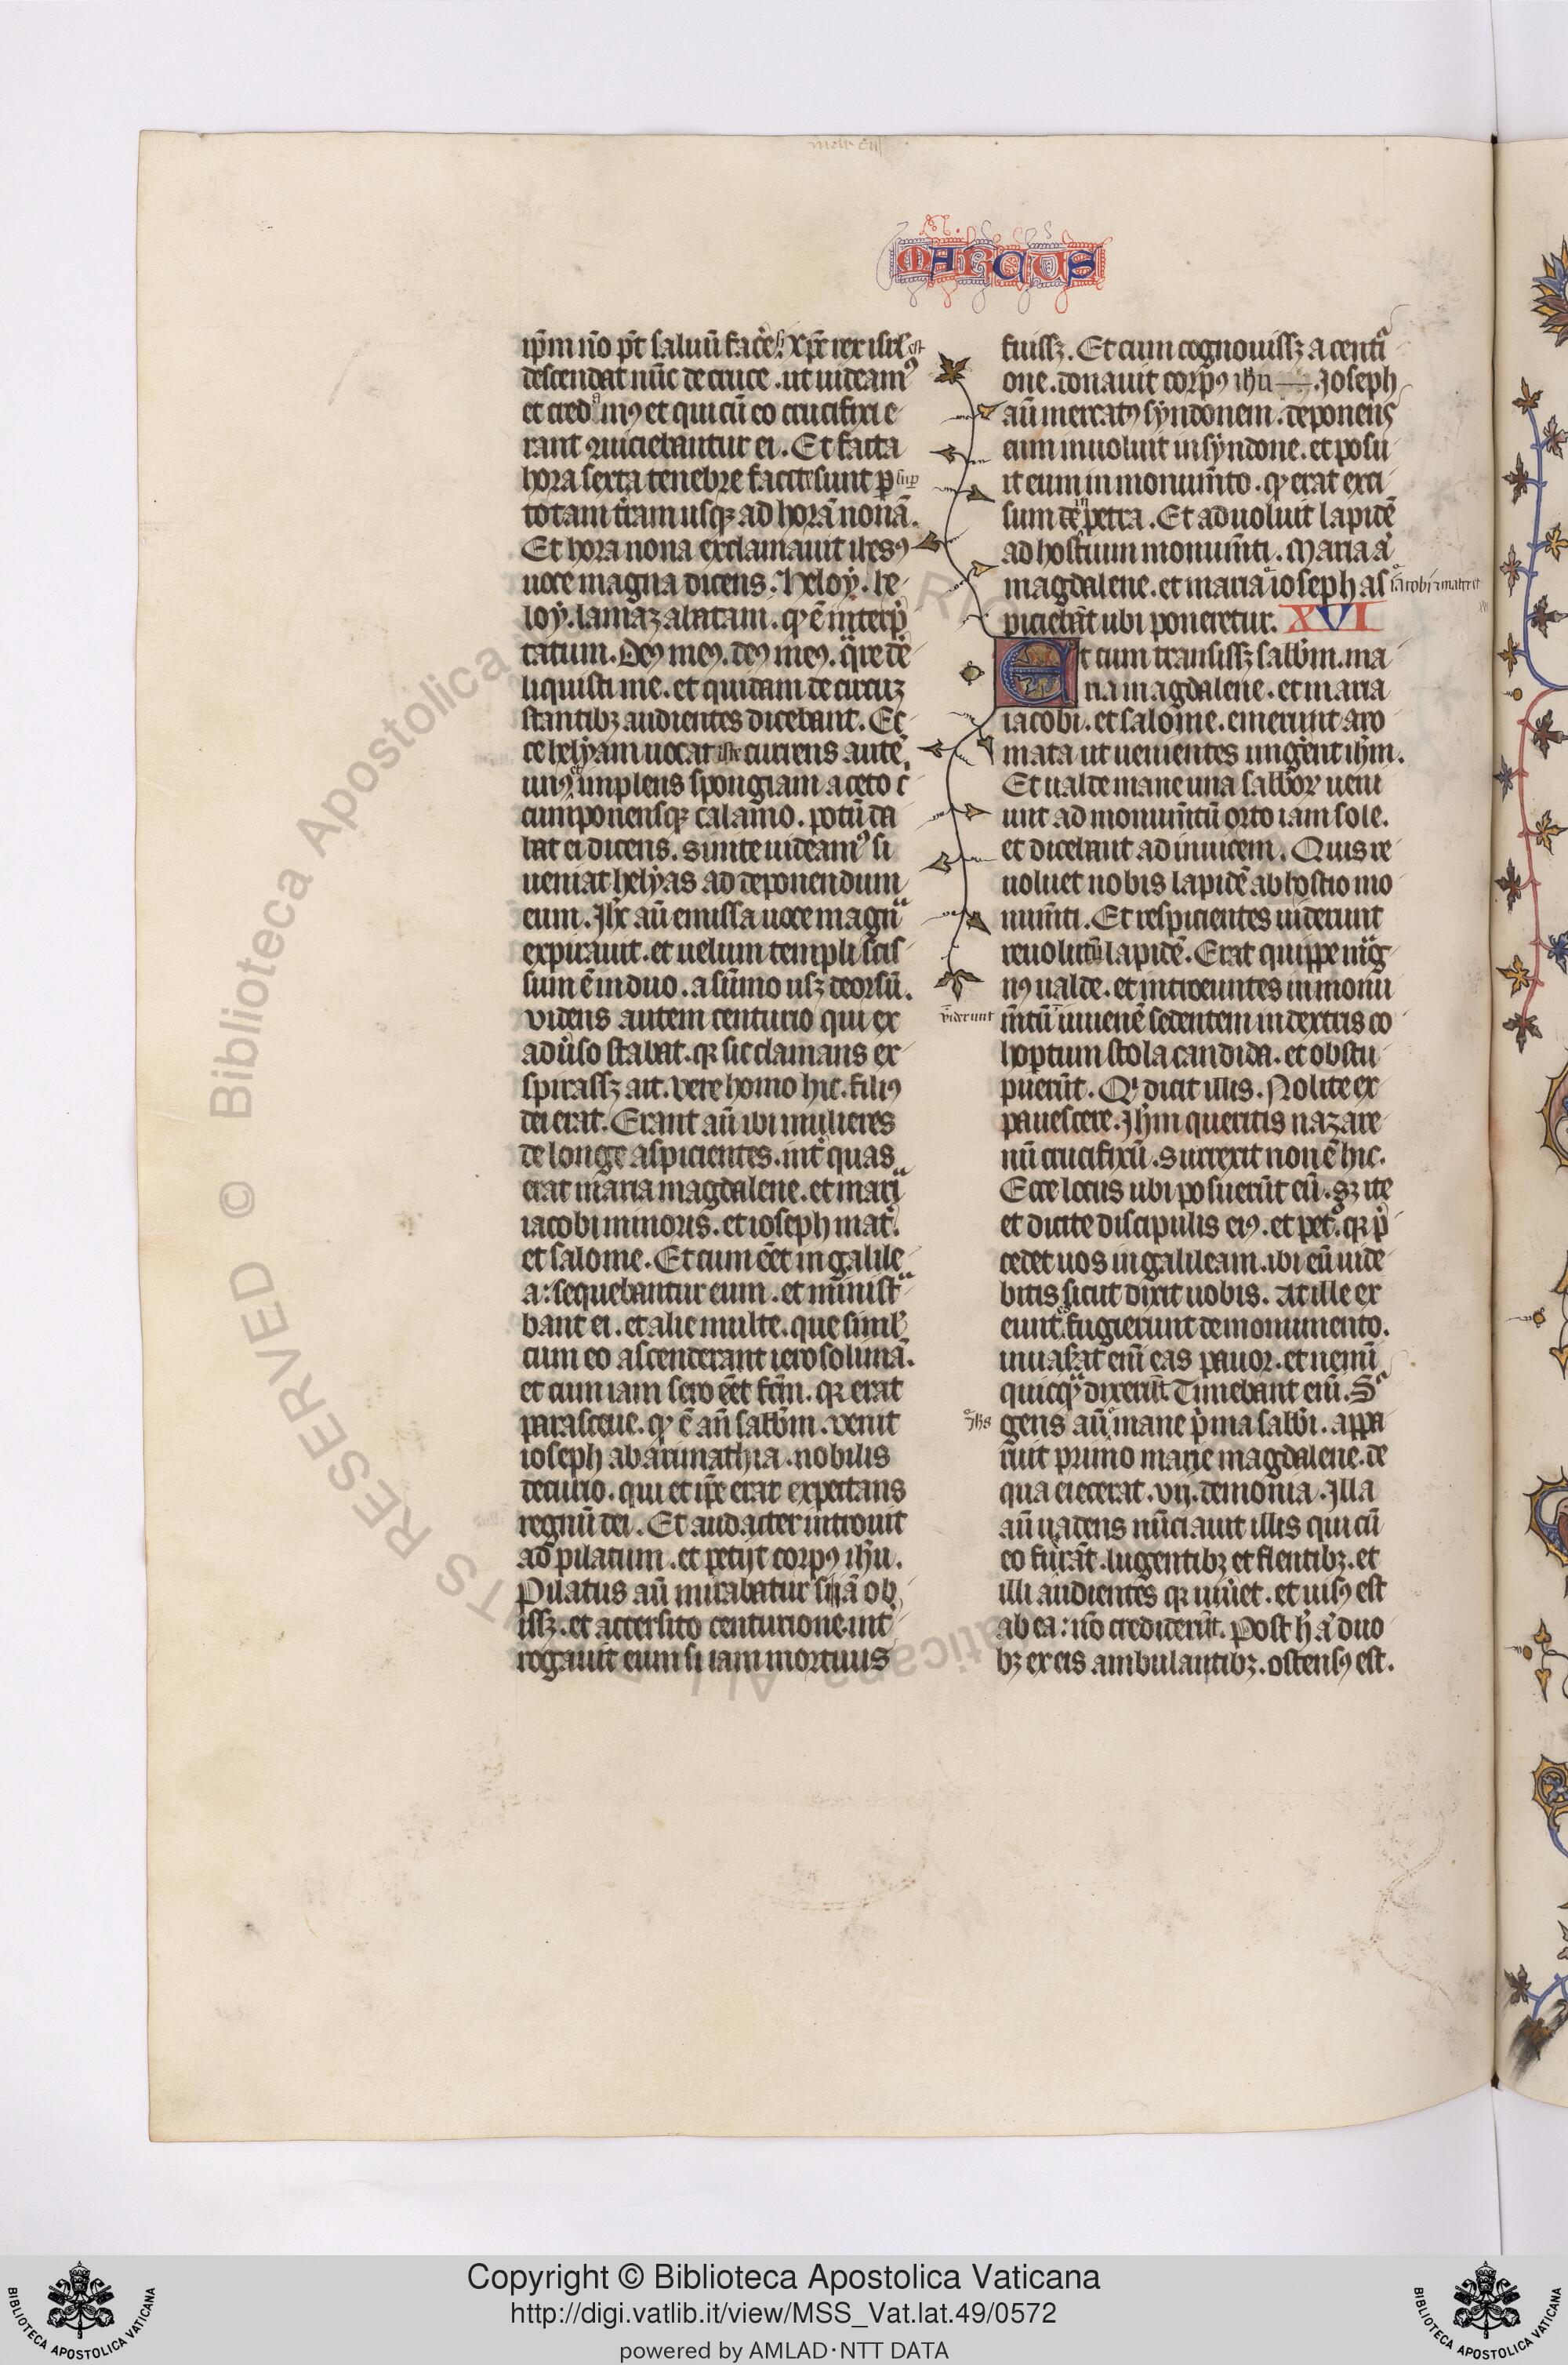 MARCUS
ip̄m nō pōt saluū facẽ. xp̄c rex isrl̄ est
descendat nūc de cruce . ut uideamꝰ
et credamꝰ et qui cū eo crucifixi e
rant ↄuiciebantur ei . Et facta
hora sexta tenebre facte sunt p̱ sup̱
totam t̄ram usqꝫ ad horā nonā .
Et hora nona exclamauit ihesꝰ
uoce magna dicens . heloẏ . he
loẏ . lamazabatani . qđ ē interp̄
tatum . deꝰ meꝰ . deꝰ meꝰ . q̄re de
liquisti me . et quidam de circuz
stantibꝫ audientes dicebant . Ec
ce helẏam uocat iste curens autē
unꝰ et implens spongiam aceto c̄
cumponensqꝫ calamo . potū da
bat ei dicens . sinite uideamꝰ si
ueniat helẏas ad deponendum
eum . Jhc̄ aū emissa uoce magna
expirauit . et uelum templi scis
sum ē in duo . a sūmo usqꝫ deorsū .
videns autem centurio qui ex
aduso stabat . qꝛ sic clamans ex
spirassꝫ ait . vere homo hic . filiꝰ
dei erat . Erant aū ibi mulieres
de longe aspicientes . int̄ quas
erat maria magdalene . et maria
iacobi minoris . et ioseph mat̄ .
et salome . Et cum eēt in galile
a : sequebantur eum . et ministra
bant ei . et alie multe . que simul
cum eo ascenderant ierosolimā .
et cum iam sero eēt fc̄m . qꝛ erat
parasceue . qđ ē an̄ sabb̄m . venit
ioseph ab arimathia . nobilis
decurio . qui et ip̄e erat expectans
regnū dei . Et audacter introiuit
ad pilatum . et petijt corpꝰ ihū .
Pilatus aū mirabatur si iā ob
issꝫ . et accersito centurione int̄
rogauit eum si iam mortuus
fuissꝫ . Et cum cognouissꝫ a centuri
one . donauit corpꝰ ihū . Joseph
aū mercatꝰ sẏndonem . deponens
eum inuoluit in sẏndone . et posu
it eum in monum̄to . qđ erat exci
sum de in petra . Et aduoluit lapidē
ad hostium monum̄ti . Maria aū
magdalene . et maria ioseph as iacobi mater
piciebāt ubi poneretur . XVI
Et cum transissꝫ sabb̄m . ma
ria magdalene . et maria
iacobi . et salome . emerunt aro
mata ut uenientes ungerent ihm̄ .
Et ualde mane una sabb̄oꝝ ueni
unt ad monum̄tū orto iam sole .
et dicebant ad inuicem . Quis re
uoluet nobis lapidē ab hostio mo
num̄ti . Et respicientes uiderunt
reuolutū lapidē . Erat quippe mag
nꝰ ualde . et introeuntes in monu
viderunt
m̄tū iuuenē sedentem in dextris co
hoptum stola candida . et obstu
puerūt . Qi dicit illis . Nolite ex
pauescere . Jhm̄ queritis nazare
nū crucifixū . surrexit non ē hic .
Ecce locus ubi posuerūt eū . sꝫ ite
et dicite discipulis eiꝰ . et petro . qꝛ p̄
cedet uos in galileam . ibi eū uide
bitis sicut dixit uobis . At ille ex
eunt̄ . fugierunt de monumento .
inuaserat eniū eas pauor . et nemini
quicqm̄ dixerūt . Timebant enī . Sr
Jhs
gens aū mane p̄ma sabb̄i . appa
ruit primo marie magdalene . de
qua eiecerat . vij . demonia . Illa
aū uadens nūciauit illis qui cū
eo fūrāt . lugentibꝫ et flentibꝫ . et
illi audientes qꝛ uiūet . et uisꝰ est
ab ea : nō crediderūt . Post h̄ aū duo
bꝫ ex eis ambulantibꝫ . ostensꝰ est .
© Biblioteca Apostolica Vaticana ALL RIGHTS RESERVED
Copyright © Biblioteca Apostolica Vaticana
http://digi.vatlib.it/view/MSS_Vat.lat.49/0572
powered by AMLAD·NTT DATA
BIBLIOTECA APOSTOLICA VATICANA
BIBLIOTECA APOSTOLICA VATICANA